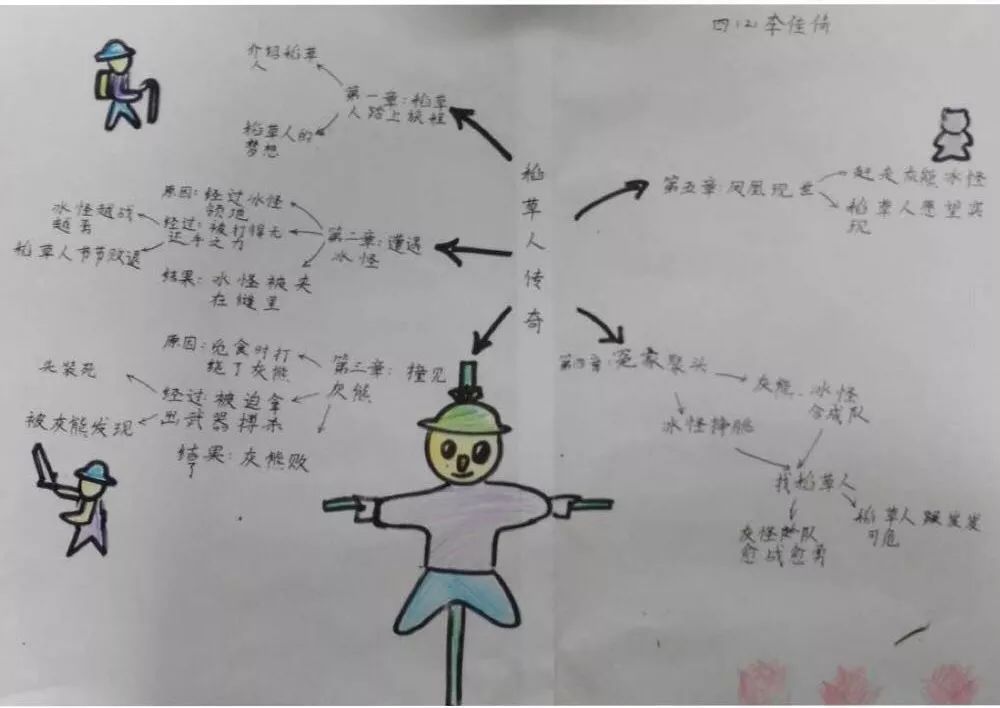 四(2)李佳倚
稻草人传奇
介绍稻草
人
第一章:稻草
人踏上旅程
稻草人的
梦想
原因:经过冰怪
领地
冰怪越战
越勇
经过:被打得无
还手之力
第二章:遭遇
冰怪
稻草人节节败退
结果:冰怪被夹
在缝里
原因:觅食时打
绕了灰熊
第三章:撞见
灰熊
头装死
经过:被迫拿
出武器搏杀
被灰熊发现
结果:灰熊败
了
第四章:冤家聚头
灰熊、冰怪
合成队
冰怪挣脱
找稻草人
灰怪队
愈战愈勇
稻草人岌岌
可危
第五章:凤凰现世
赶走灰熊冰怪
稻草人愿望实
现